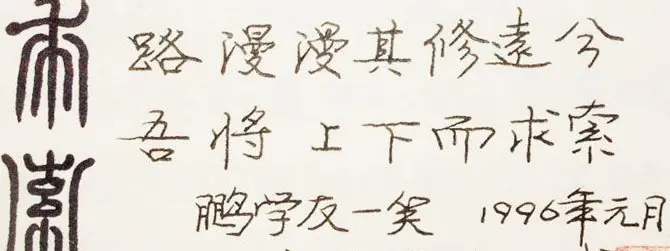 求索
路漫漫其修遠兮
吾將上下而求索
鹏学友一笑 1996年元月